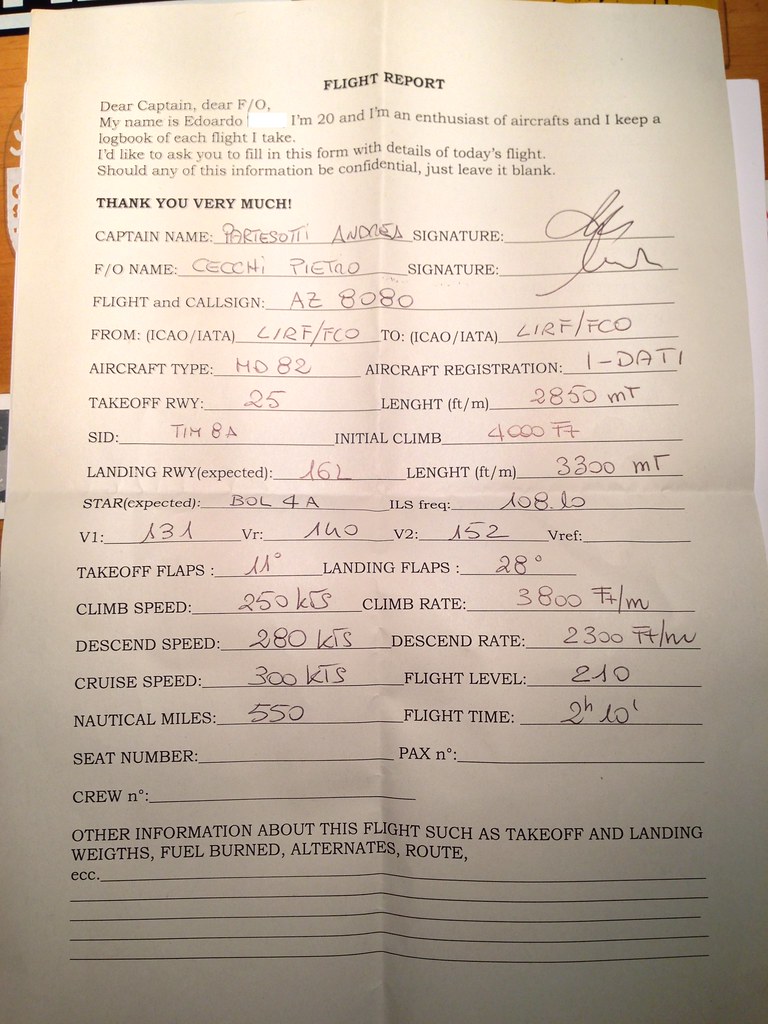 FLIGHT REPORT
Dear Captain, dear F/O,
My name is Edoardo I'm 20 and I'm an enthusiast of aircrafts and I keep a
logbook of each flight I take.
I'd like to ask you to fill in this form with details of today's flight.
Should any of this information be confidential, just leave it blank.
THANK YOU VERY MUCH!
CAPTAIN NAME: PARTESOTTI ANDREA SIGNATURE:
F/O NAME: CECCHI PIETRO SIGNATURE:
FLIGHT and CALLSIGN: AZ 8080
FROM: (ICAO/IATA) LIRF/FCO TO: (ICAO/IATA) LIRF/FCO
AIRCRAFT TYPE: MD 82 AIRCRAFT REGISTRATION: I-DATI
TAKEOFF RWY: 25 LENGHT (ft/m) 2850 mT
SID: TIM 8A INITIAL CLIMB 4000 FT
LANDING RWY(expected): 16L LENGHT (ft/m) 3300 mT
STAR(expected): BOL 4A ILS freq: 108.10
V1: 131 Vr: 140 V2: 152 Vref:
TAKEOFF FLAPS : 11° LANDING FLAPS : 28°
CLIMB SPEED: 250 KTS CLIMB RATE: 3800 FT/m
DESCEND SPEED: 280 KTS DESCEND RATE: 2300 FT/m
CRUISE SPEED: 300 KTS FLIGHT LEVEL: 210
NAUTICAL MILES: 550 FLIGHT TIME: 2h 10'
SEAT NUMBER: PAX n°:
CREW n°:
OTHER INFORMATION ABOUT THIS FLIGHT SUCH AS TAKEOFF AND LANDING
WEIGTHS, FUEL BURNED, ALTERNATES, ROUTE,
ecc.